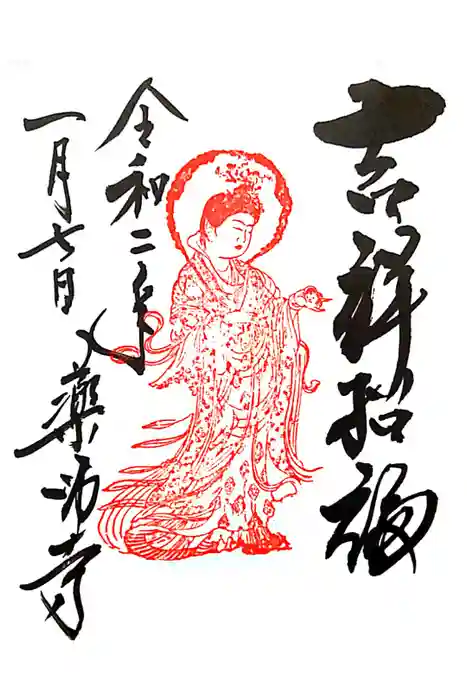 吉祥招福
令和二年
一月七日
薬师寺